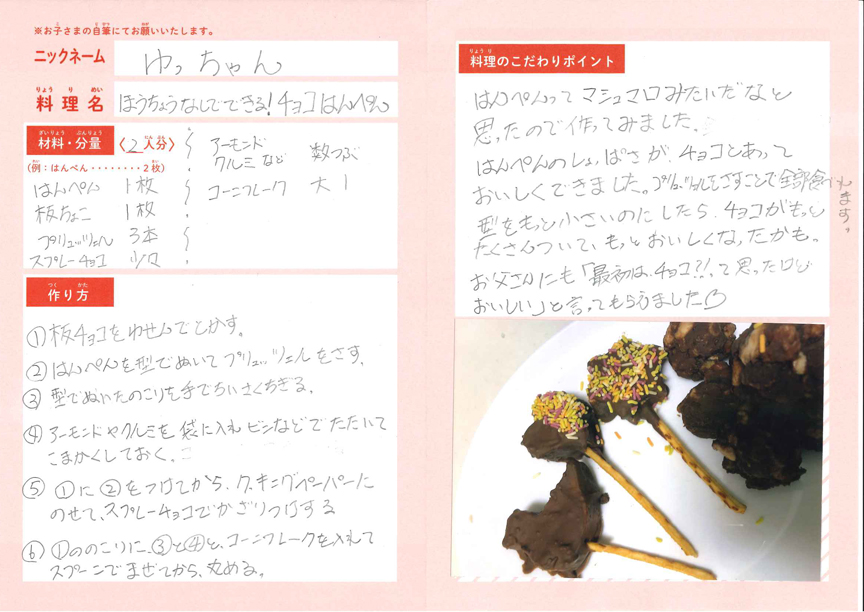 ※お子さまの自筆にてお願いいたします。
ニックネーム
ゆっちゃん
料理名
ほうちょうなしでできる!チョコはんぺん
材料・分量
〈2人分〉
(例:はんぺん・・・・・・・・2枚)
はんぺん 1枚
板ちょこ 1枚
プリュッツェル 3本
スプレーチョコ 少々
アーモンド
クルミなど 数つぶ
コーンフレーク 大1
作り方
①板チョコをゆせんでとかす。
②はんぺんを型でぬいてプリュッツェルをさす。
③型でぬいたのこりを手でちいさくちぎる。
④アーモンドやクルミを袋に入れビンなどでたたいて
こまかくしておく。
⑤①に②をつけてから、クッキングペーパーに
のせて、スプレーチョコでかざりつけする
⑥①ののこりに、③と④と、コーンフレークを入れて
スプーンでまぜてから、丸める。
料理のこだわりポイント
はんぺんってマシュマロみたいだなと
思ったので作ってみました。
はんぺんのしょっぱさが、チョコとあって
おいしくできました。プリュッツェルをさすことで全部食べれます。
型をもっと小さいのにしたら、チョコがもっと
たくさんついて、もっとおいしくなったかも。
お父さんにも「最初は、チョコ?!って思ったけど
おいしい」と言ってもらえました♡